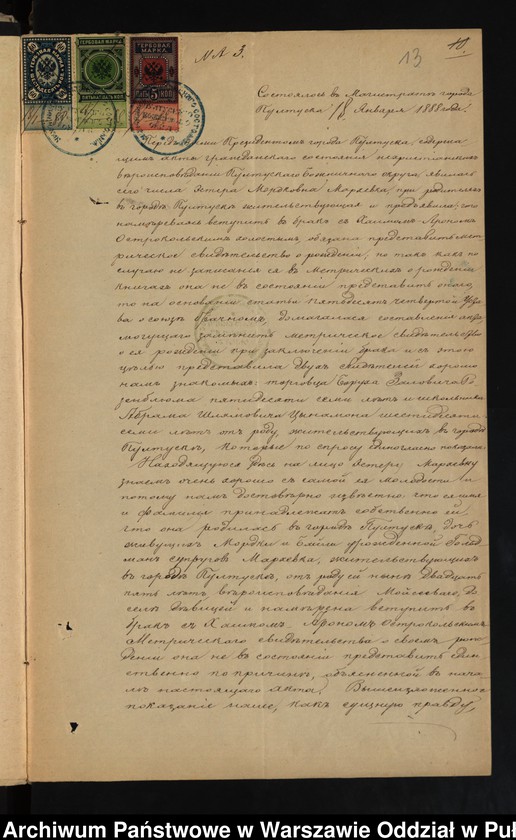 N A 3.
13
10.
ГЕРБОВАЯ МАРКА
ГЕРБОВАЯ МАРКА
5 КОП
Состоялось въ Магистратѣ города
Пултуска /18/ Января 1888 года.
Передъ Президентомъ города Пултуска, содержа
щимъ акты гражданскаго состоянія нехристіанскихъ
вѣроисповѣданій Пултускаго Божничнаго округа явилась
сего числа Эстера Мордковна Маржевка, при родителяхъ
въ городѣ Пултускѣ жительствующая и предъявила: что
намѣреваясь вступить въ бракъ съ Хаимомъ Арономъ
Остроколь­скимъ холостымъ, обязана представить мет-
рическое свидѣтельство о рожденіи, но такъ какъ по
случаю не записанія ея въ метрическія о рожденіи
книги она не въ состояніи представить онаго,
то на основаніи статьи пятьдесятъ четвертой Уста
ва о союзѣ брачномъ, домогалась составленія акта
могущаго замѣнить метрическое свидѣтельство
о ея рожденіи при заключеніи брака и съ этою
цѣлью представила двухъ свидѣтелей хорошо
намъ знакомыхъ: торговца Боруха
пятидесяти семи лѣтъ и школьника
Абрама Шлямовича Цынамона шестидесяти
семи лѣтъ отъ роду, жительствующихъ въ городѣ
Пултускѣ, которые по спросу единогласно показали:
Находящуюся здѣсь на лицо Эстеру Маржевку
знаемъ очень хорошо съ самой ея молодости и
потому намъ достовѣрно извѣстно, что имя
и фамилія принадлежатъ собственно ей,
что она родилась въ городѣ Пултускѣ, дочь
живущихъ Мордки и Байли урожденной
манъ супруговъ Маржевка, жительствующихъ
въ городѣ Пултускѣ, отъ роду ей нынѣ двадцать
пять лѣтъ вѣроисповѣданія Моисеева, до
селѣ дѣвицей и намѣрена вступить въ
бракъ съ Хаимомъ-Арономъ Остроколь­скимъ.
Метрическаго свидѣтельства о своемъ рож-
деніи она не въ состояніи представить един
ственно по причинѣ, объясненной въ нача
лѣ настоящаго акта. Вышеизложенное
показаніе наше, какъ сущую правду,
Archiwum Państwowe w Warszawie Oddział w Puł